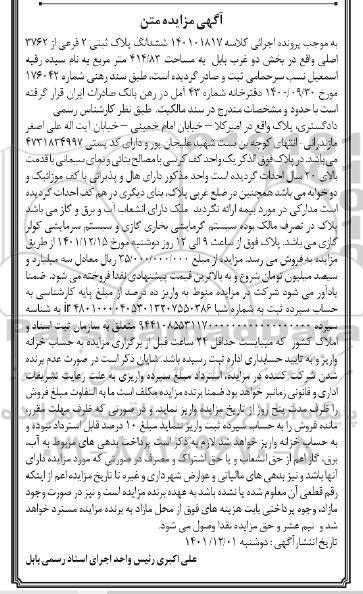 آگهی مزایده متن
به موجب پرونده اجرائی کلاسه ۱۴۰۱۰۱۸۱۷ ششدانگ پلاک ثبتی ۲ فرعی از ۳۷۶۲
اصلی واقع در بخش دو غرب بابل به مساحت ۴۱۴/۸۳ متر مربع به نام سیده رقیه
اسمعیل نسب سرحمامی ثبت و صادر گردیده است. طبق سند رهنی شماره ۱۷۶۰۴۲
مورخ ۱۴۰۰/۰۹/۳۰ دفترخانه شماره ۴۳ آمل در رهن بانک صادرات ایران قرار گرفته
است با حدود و مشخصات مندرج در سند مالکیت. طبق نظر کارشناس رسمی
دادگستری، پلاک واقع در امیرکلا – خیابان امام خمینی – خیابان آیت اله علی اصغر
مازندرانی – انتهای کوچه بن بست شهید علیجان پور و دارای کد پستی ۴۷۳۱۸۳۴۹۹۷
می باشد. در پلاک فوق الذکر یک واحد کف کرسی با مصالح بنائی و نمای سیمانی با قدمت
بالای ۲۰ سال احداث گردیده است واحد مذکور دارای هال و پذیرائی با کف موزائیک و
دو خوابه می باشد همچنین در ضلع غربی پلاک، بنای دیگری در هم کف احداث گردیده
است مدارکی در مورد بیمه ارائه نگردید ملک دارای انشعاب آب و برق و گاز می باشد
پلاک در تصرف مالک بوده سیستم گرمایشی بخاری گازی و سیستم سرمایشی کولر
گازی می باشد. پلاک فوق از ساعت ۹ الی ۱۲ روز دوشنبه مورخ ۱۴۰۱/۱۲/۱۵ از طریق
مزایده به فروش می رسد. مزایده از مبلغ ۳۵/۰۰۰/۰۰۰/۰۰۰ ریال معادل سه میلیارد و
سیصد میلیون تومان شروع و به بالاترین قیمت پیشنهادی نقدا فروخته می شود. ضمنا
یادآور می شود شرکت در مزایده منوط به واریز ده درصد از مبلغ پایه کارشناسی به
حساب سپرده ثبت به شماره شبا ir ۴۸۰۱۰۰۰۰۴۰۵۳۰۱۳۲۰۷۵۵۰۳۸۶ به شناسه
سپرده متعلق به سازمان ثبت اسناد و
املاک کشور که میبایست حداقل ۲۴ ساعت قبل از برگزاری مزایده به حساب خزانه
واریز و به تایید حسابداری اداره ثبت رسیده باشد. شایان ذکر است در صورت عدم برنده
شدن شرکت کننده در مزایده، استرداد مبلغ سپرده واریزی به علت رعایت تشریفات
اداری و قانونی زمانبر خواهد بود ضمنا برنده مزایده مکلف است ما به التفاوت مبلغ فروش
را ظرف مدت پنج روز از تاریخ مزایده واریز نمایند و در صورتی که ظرف مهلت مقرر،
مانده فروش را به حساب سپرده ثبت واریز ننماید مبلغ ۱۰ درصد قابل استرداد نبوده و
به حساب خزانه واریز خواهد شد لازم به ذکر است پرداخت بدهی های مربوط به آب،
برق، گاز اعم از حق انشعاب و یا حق اشتراک و مصرف در صورتی که مورد مزایده دارای
آنها باشد و نیز بدهی های مالیاتی و عوارض شهرداری و غیره تا تاریخ مزایده اعم از اینکه
رقم قطعی آن معلوم شده یا نشده باشد به عهده برنده مزایده است و نیز در صورت وجود
مازاد، وجوه پرداختی بابت هزینه های فوق از محل مازاد به برنده مزایده مسترد خواهد
شد و نیم عشر و حق مزایده نقدا وصول می شود.
تاریخ انتشار آگهی: دوشنبه ۱۴۰۱/۱۲/۰۱
علی اکبری رئیس واحد اجرای اسناد رسمی بابل